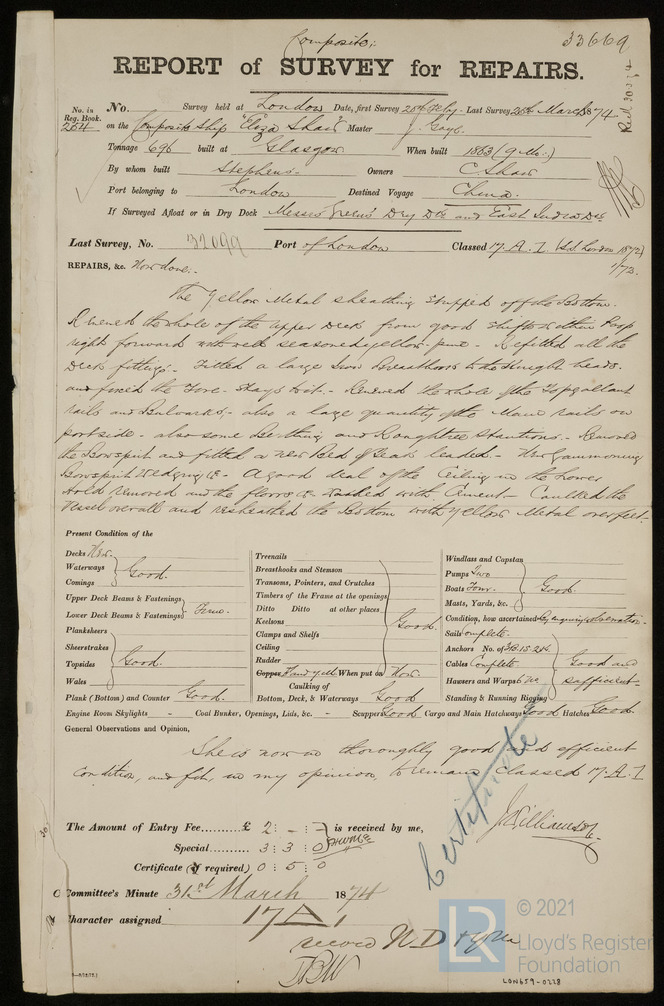 Composite;
33669
REPORT of SURVEY for REPAIRS.
No. in Reg. Book. 264
No. Survey held at London Date, first Survey 28th Feby. Last Survey 26th March 1874
on the Composite Ship "Eliza Shaw" Master J. Gaye.
Tonnage 696 built at Glasgow When built 1863 (9 Mo.)
By whom built Stephens. Owners C. Shaw
Port belonging to London Destined Voyage China.
If Surveyed Afloat or in Dry Dock Messrs Green's Dry Dck and East India Dck
Last Survey, No. 32099 Port of London Classed 17 A. 1. (S.S. London 1872)
REPAIRS, &c. Now done.
The Yellow Metal sheathing stripped off the Bottom.
Renewed the whole of the upper Deck from good shifts within Poop
right forward with well seasoned yellow pine. - Refitted all the
Deck fittings. - Fitted a large Iron Breasthook to the Knight heads.
and fixed the Fore Stays to it. - Renewed the whole of the Topgallant
rails and Bulwarks, - also a large quantity of the Main rails on
port side. - also some Berthing and Roughtree Stantions. - Removed
the Bowsprit and fitted a new Bed of Teak leaded. - New Grammoning
Bowsprit Wedging &c. - A good deal of the Ceiling in the Lower
Hold removed and the floors &c washed with Cement - Caulked the
Vessel overall and resheathed the Bottom with Yellow Metal over felt. -
Present Condition of the
Decks New.
Waterways
Comings
Good.
Upper Deck Beams & Fastenings
Lower Deck Beams & Fastenings
Planksheers
Sheerstrakes
Topsides
Wales
Good.
Plank (Bottom) and Counter Good.
Treenails
Breasthooks and Stemson
Transoms, Pointers, and Crutches
Timbers of the Frame at the openings
Ditto Ditto at other places
Keelsons
Clamps and Shelfs
Ceiling
Rudder
Good
Copper When put on Now.
Caulking of
Bottom, Deck, & Waterways Good
Windlass and Capstan
Pumps Two
Boats Four.
Masts, Yards, &c.
Good.
Condition, how ascertained By enquiry & observation.
Sails Complete.
Anchors No. of
Cables Complete
Hawsers and Warps
Standing & Running Rigging
Good and
sufficient
Engine Room Skylights - Coal Bunker, Openings, Lids, &c. - Scuppers Good Cargo and Main Hatchways Good Hatches Good.
General Observations and Opinion,
She is now in thoroughly good and efficient
Condition, and fit, in my opinion, to remain Classed 17 A. 1
Certificate
The Amount of Entry Fee......... £ 2 : - : - is received by me,
Special......... 3 : 3 : 0
Certificate (if required) 0 : 5 : 0
J. Williamson
Committee's Minute 31st March 1874
Character assigned 17 A 1
record N D & YM
© 2021
LR
Lloyd's Register
Foundation
LON659-0228